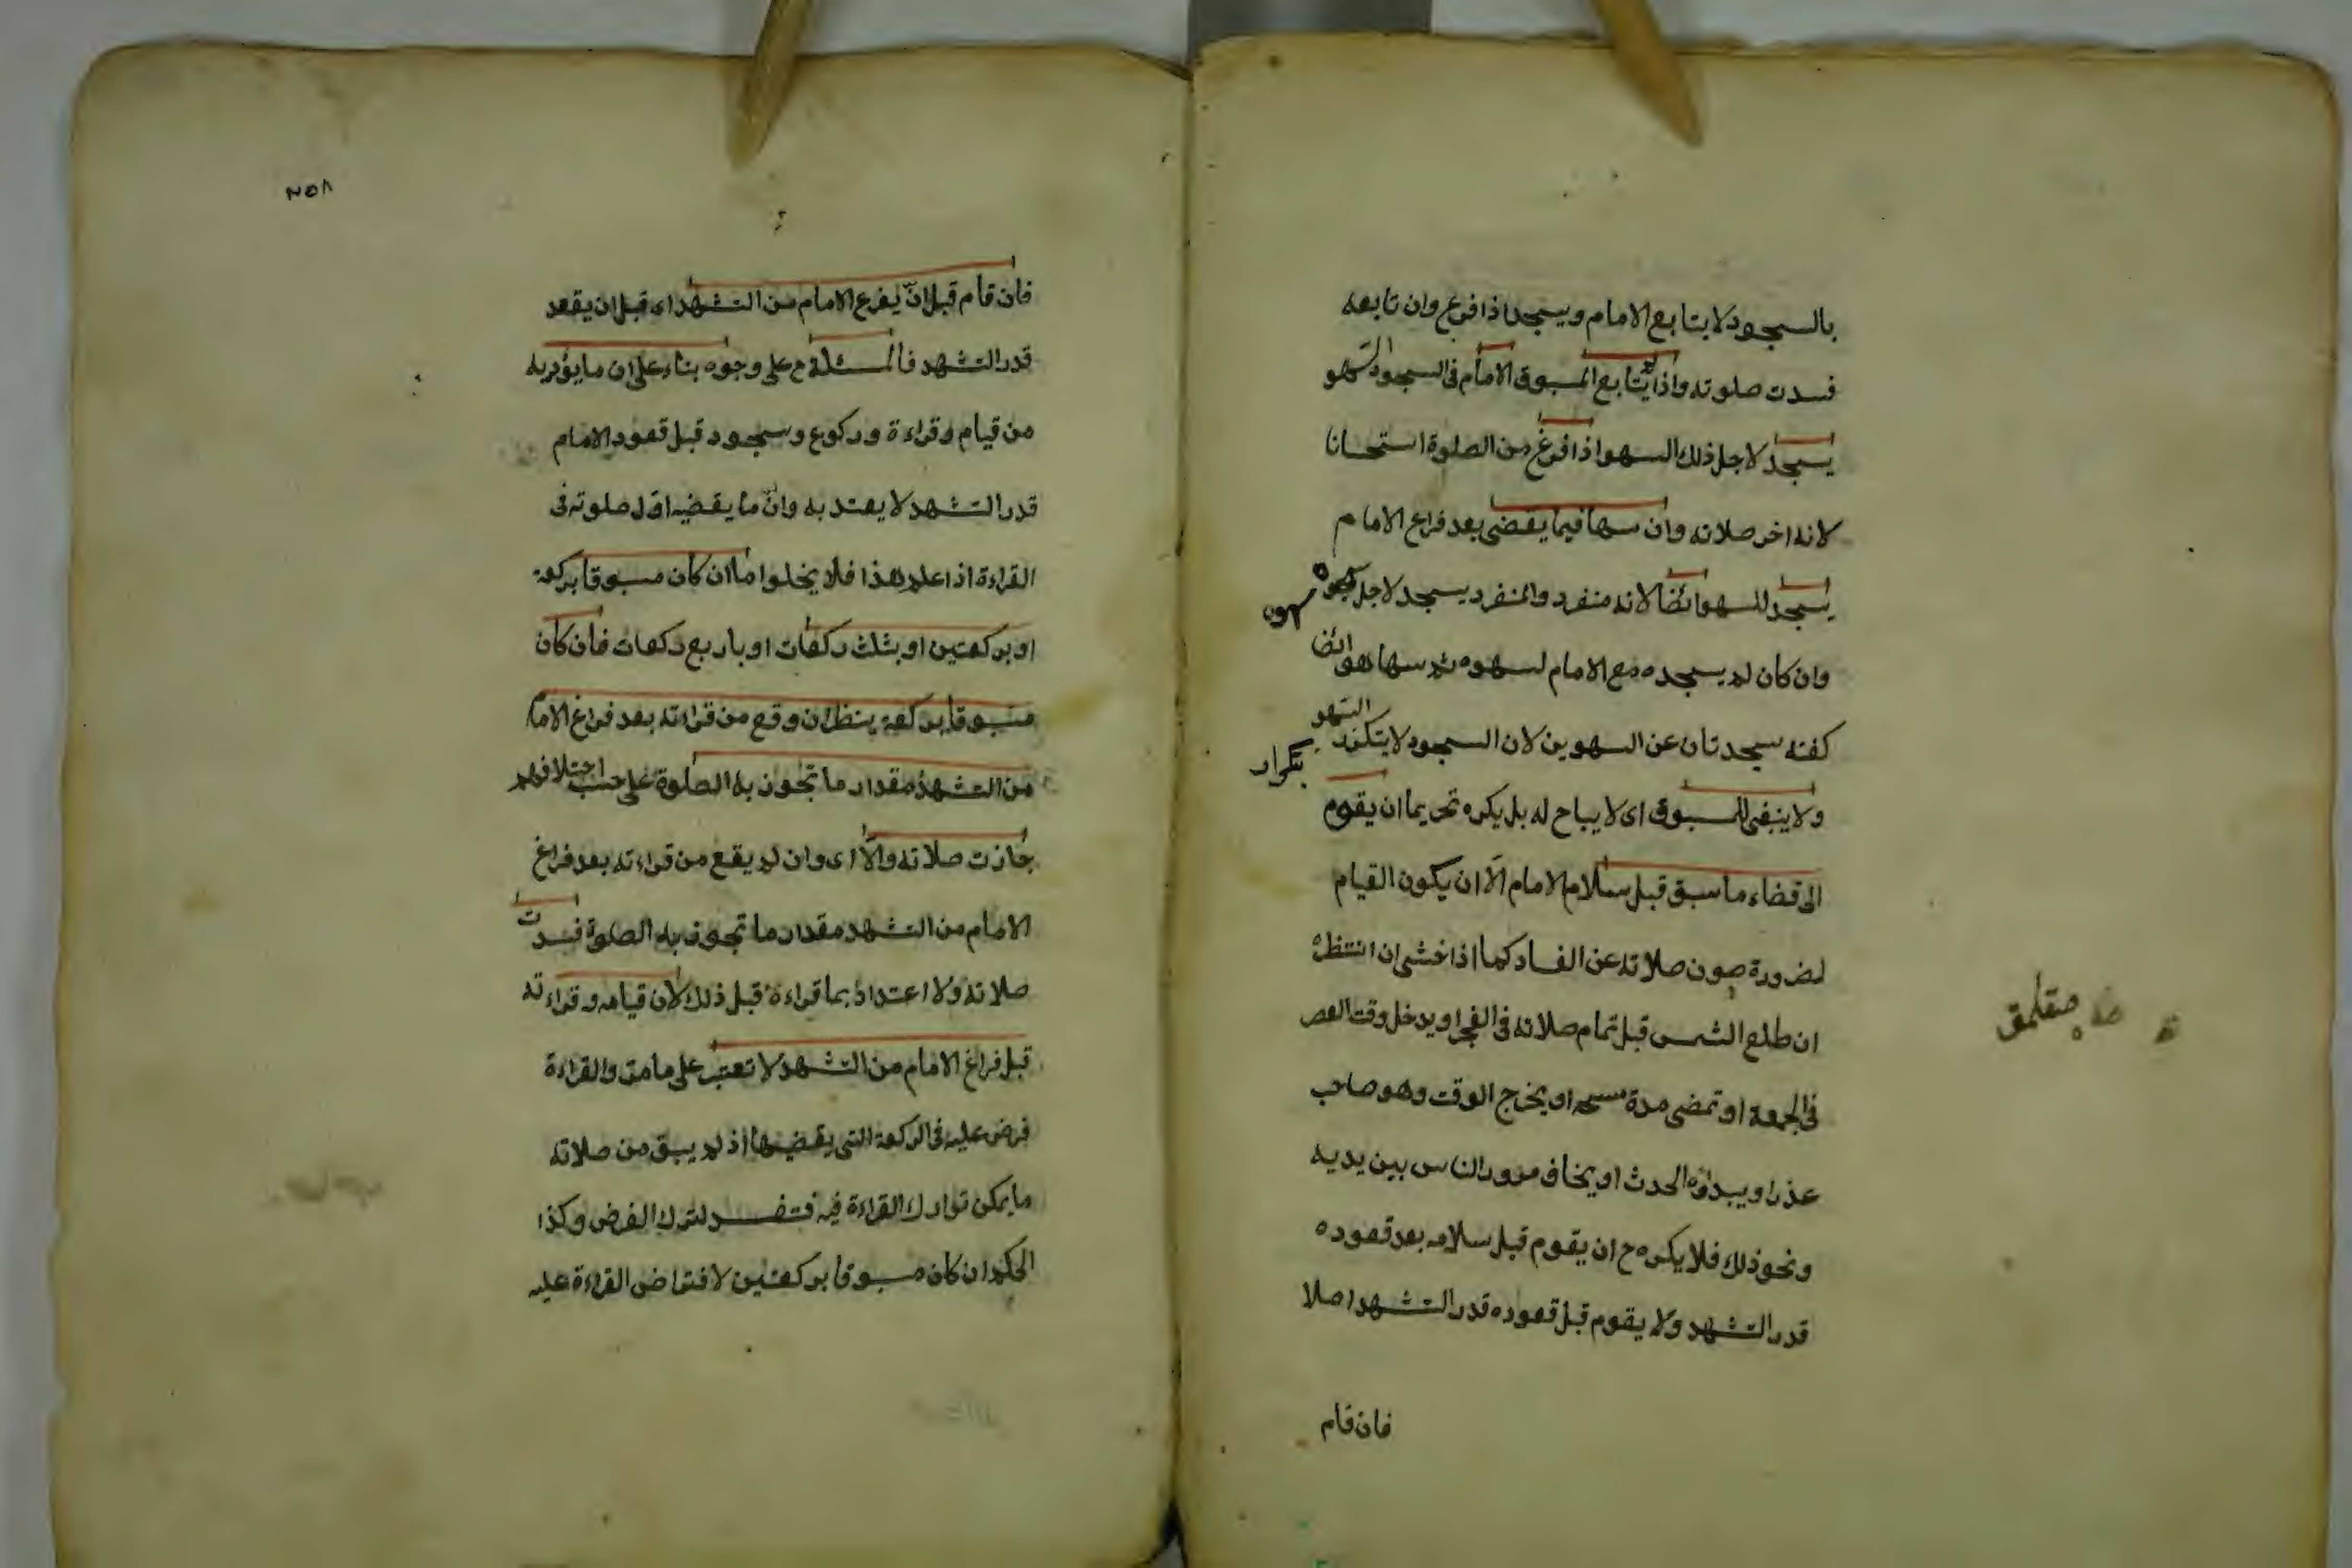 بالسجود لا يتابع الامام ويسجد اذا فرغ وان تابعه
فسدت صلوته واذا لم يتابع المسبوق الامام فى السجود للسهو
يسجد لاجل ذلك السهو اذا فرغ من الصلوة استحسانا
لانه اخر صلاته وان سها فيما يقضى بعد فراغ الامام
يسجد للسهو ايضا لانه منفرد والمنفرد يسجد لاجل
سهوه
وان كان لم يسجده مع الامام لسهوه ثم سها هو ايضا
كفته سجدتان عن السهوين لان السجود لا يتكرر
بتكرار السهو
ولا ينبغى للمسبوق اى لا يباح له بل يكره تحريما ان يقوم
الى قضاء ما سبق قبل سلام الامام الا ان يكون القيام
لضرورة صون صلاته عن الفساد كما اذا خشى ان انتظره
ان طلع الشمس قبل تمام صلاته فى الفجر او يدخل وقت العصر
فى الجمعة او تمضى مدة مسحه او يخرج الوقت وهو صاحب
عذر او يبدؤه الحدث او يخاف مرور الناس بين يديه
ونحو ذلك فلا يكره ح ان يقوم قبل سلامه بعد قعوده
قدر التشهد ولا يقوم قبل قعوده قدر التشهد اصلا
فان قام
٢٥٨
فان قام قبل ان يفرغ الامام من التشهد اى قبل ان يقعد
قدر التشهد فالمسئلة ح على وجوه بناء على ان ما يؤديه
من قيام وقراءة وركوع وسجود قبل قعود الامام
قدر التشهد لا يعتد به وان ما يقضيه اول صلوته فى
القراءة اذا علم هذا فلا يخلوا ما ان كان مسبوقا بركعة
او بركعتين او بثلث ركعات او باربع ركعات فان كان
مسبوقا بركعة ينظر ان وقع من قراءته بعد فراغ الامام
من التشهد مقدار ما تجوز به الصلوة على حسب اختلافهم
جازت صلاته والا اى وان لم يقع من قراءته بعد فراغ
الامام من التشهد مقدار ما تجوز به الصلوة فسدت
صلاته ولا اعتداد بما قراءة قبل ذلك لان قيامه وقراءته
قبل فراغ الامام من التشهد لا تعتبر على ما مر والقراءة
فرض عليه فى الركعة التى يقضيها اذ لم يبق من صلاته
ما يمكن تدارك القراءة فيه فتفسد لترك الفرض وكذا
الحكم ان كان مسبوقا بركعتين لافتراض القراءة عليه